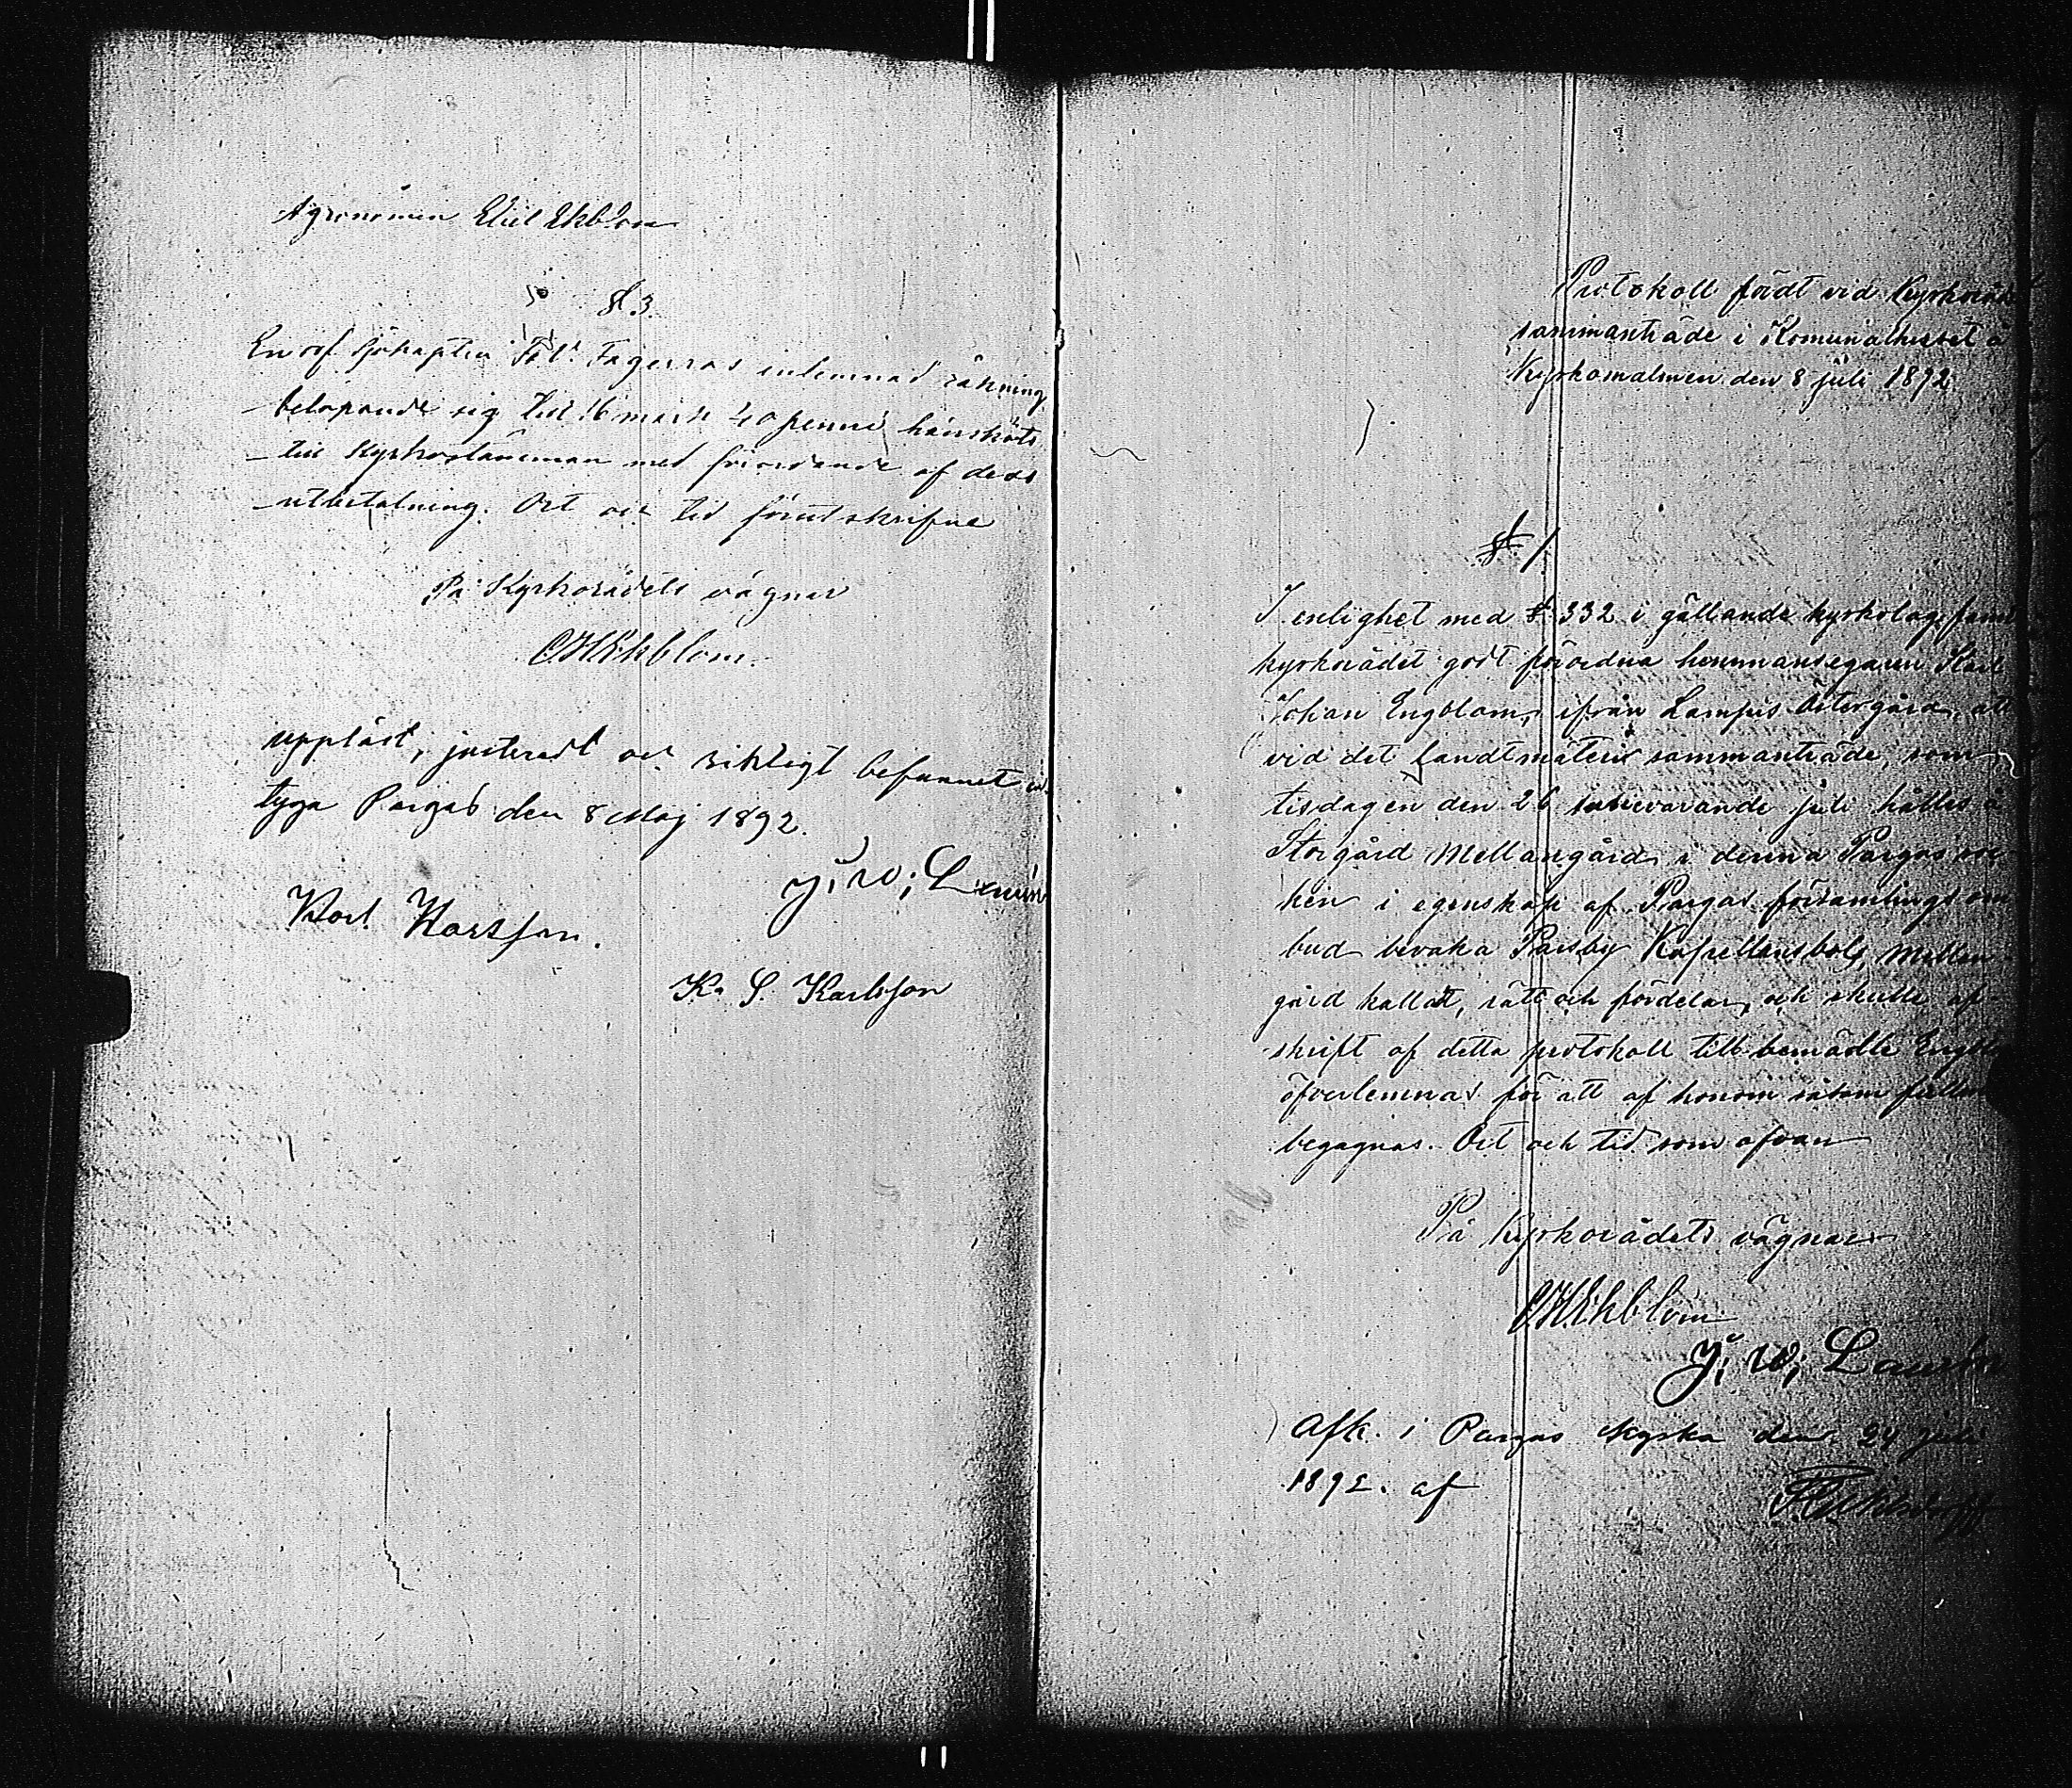 Agronomen Eliel Ekblom
§. 3.
En af Sjökapten Fagerras inlemnad räkning
belöpande sig till 16 mark 40 penni hänsköts
till Kyrkostämman med förordande af dess
utbetalning. Ort och tid förutskrifne
På Kyrkorådets vägnar
C H Ekblom.
uppläst, justeradt och riktigt befunnet
tyga Pargas den 8 Maj 1892.
J. W. Lenin
Karl Karlsson.
K. S. Karlsson
Protokoll fördt vid Kyrkoråds
sammanträde i Komunalhuset å
Kyrkomalmen den 8 juli 1892
§. 1.
I enlighet med §. 332 i gällande kyrkolag fann
kyrkorådet godt förordna hemmansegaren Karl
Johan Engblom, ifrån Lampis Östergård, att
vid det Landtmäteri sammanträde, som
tisdagen den 26 innevarande juli hålles å
Storgård Mellangård i denna Pargas soc
ken i egenskap af Pargas församlings om
bud bevaka Parsby Kapellansbols, Mellan
gård kalladt, rätt och fördelar, och skulle af
skrift af detta protokoll till bemälde Engblom
öfverlemnas för att af honom såsom fullm
begagnas. Ort och tid som ofvan
På Kyrkorådets vägnar
C H Ekblom
J. W. Lenin
Afk. i Pargas Kyrka den 24 juli
1892. af